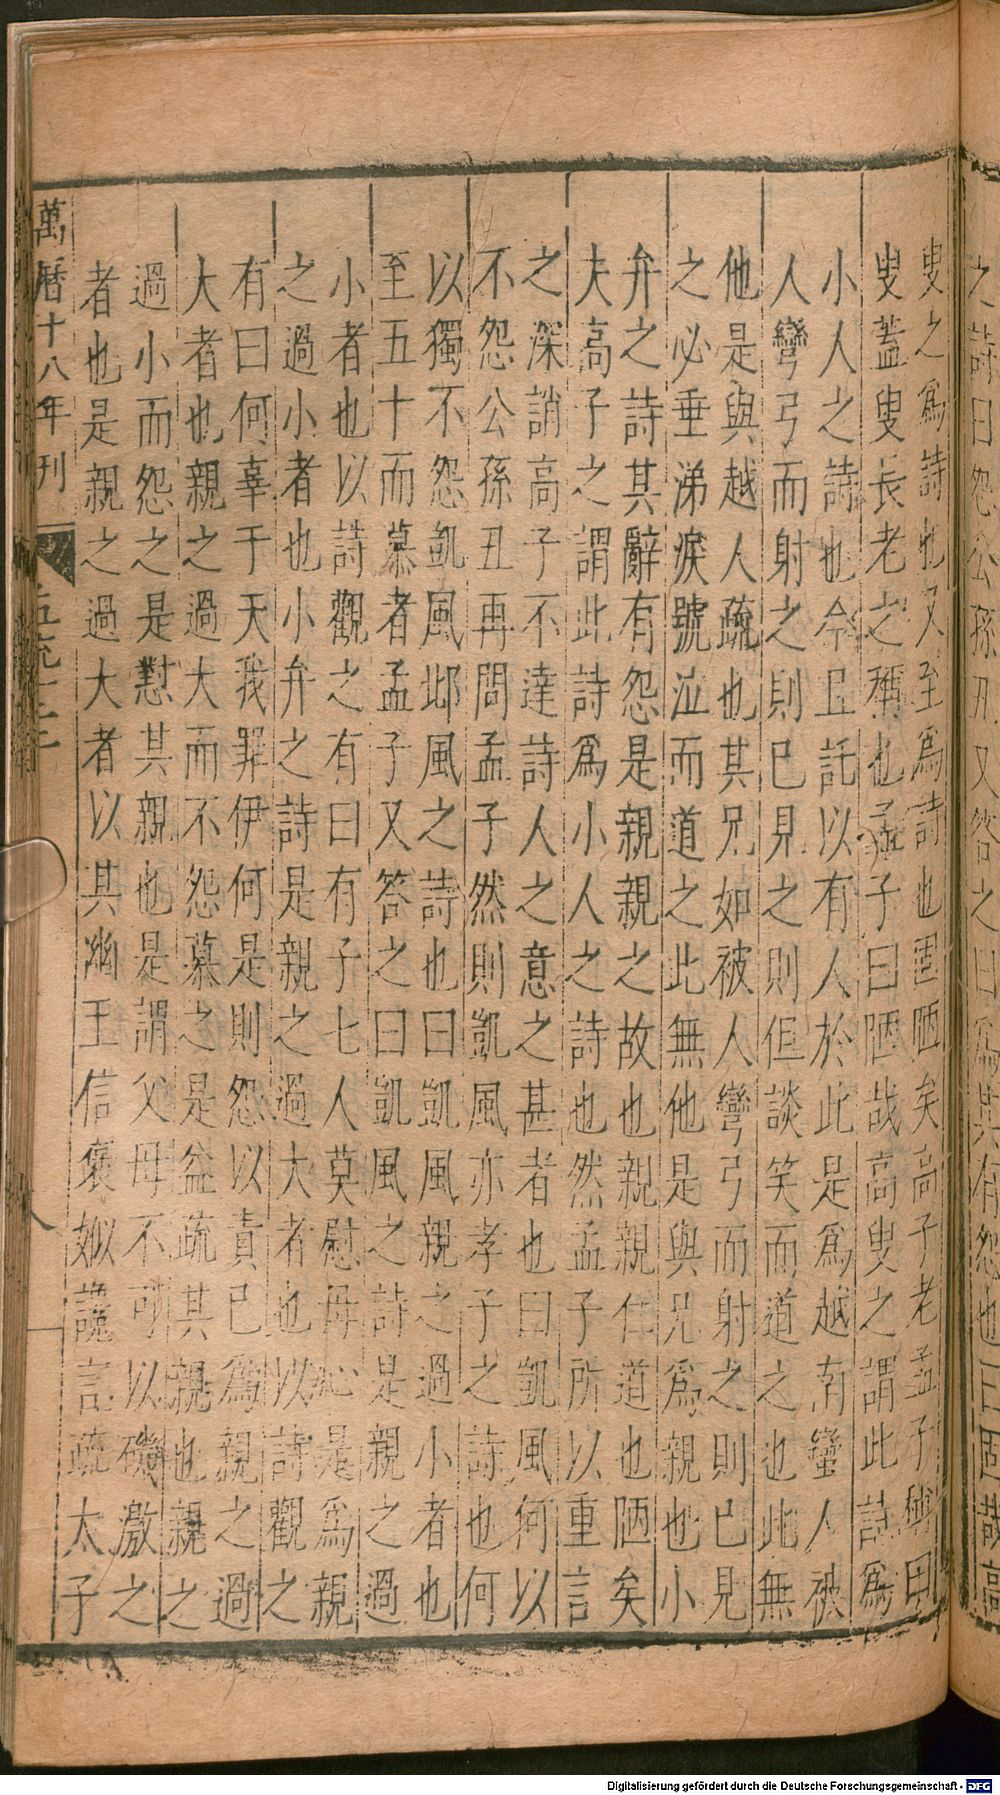 之詩曰怨公孫丑又答之曰爲其有怨也曰固哉高
叟之爲詩也又至爲詩也固陋矣高子老孟子曰
叟蓋叟長老之稱也孟子曰陋哉高叟之謂此詩爲
小人之詩也今且託以有人於此是爲越南蠻人被
人彎弓而射之則已見之則但談笑而道之也此無
他是與越人疏也其兄如被人彎弓而射之則已見
之必垂涕淚號泣而道之此無他是與兄爲親也小
弁之詩其辭有怨是親親之故也親親仁道也陋矣
夫高子之謂此詩爲小人之詩也然孟子所以重言
之深誚高子不達詩人之意之甚者也曰凱風何以
不怨公孫丑再問孟子然則凱風亦孝子之詩也何
以獨不怨凱風邶風之詩也曰凱風親之過小者也
至五十而慕者孟子又答之曰凱風之詩是親之過
小者也以詩觀之有曰有子七人莫慰母心是爲親
之過小者也小弁之詩是親之過大者也以詩觀之
有曰何辜于天我罪伊何是則怨以責已爲親之過
大者也親之過大而不怨慕之是益疏其親也親之
過小而怨之是懟其親也是謂父母不可以磯激之
者也是親之過大者以其幽王信褒姒讒言疏太子
萬曆十八年刊
Digitalisierung gefördert durch die Deutsche Forschungsgemeinschaft - DFG